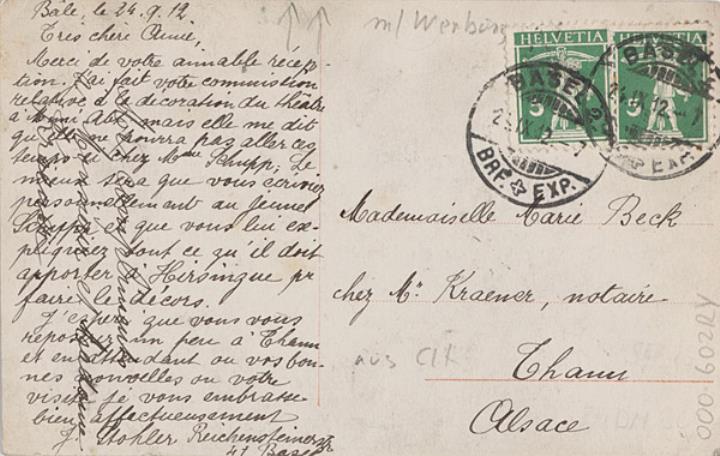 Bâle, le 24.9.12
Très chère Amie,
Merci de votre aimable récep-
tion. J'ai fait votre commission
relative à la décoration du théâtre
à mais elle me dit
qu'elle ne pourra pas aller ces
temps-ci chez Mme Schupp; Le
mieux sera que vous écriviez
personnellement au jeune
Schupp et que vous lui ex-
pliquiez tout ce qu'il doit
apporter à Hirsingue pr
faire les décors.
J'espère que vous vous
reposez un peu à Thann
et en attendant ou vos bon-
nes nouvelles ou votre
visite je vous embrasse
bien affectueusement
J. Stohler Reichensteinerstr
41 Basel
m/ Werbung
HELVETIA
HELVETIA
5
5
BASEL 2
24.IX.12.–7
BRF. EXP.
BASEL 2
24.IX.12.–7
BRF. EXP.
Mademoiselle Marie Beck
chez Mr. Kraener, notaire
Thann
Alsace
aus CH
000-602RY